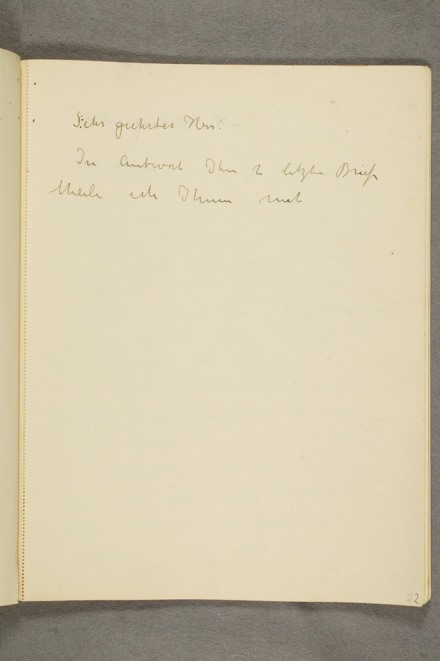 Sehr geehrter Herr:
In Antwort Ihre 2 letzten Briefe
theile ich Ihnen mit
22